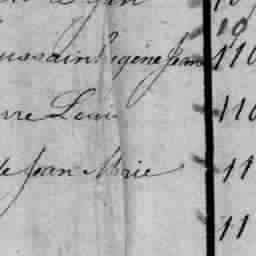 10
ussaint Eugène Jean 110
rre Louis 110
de Jean Marie 11
11